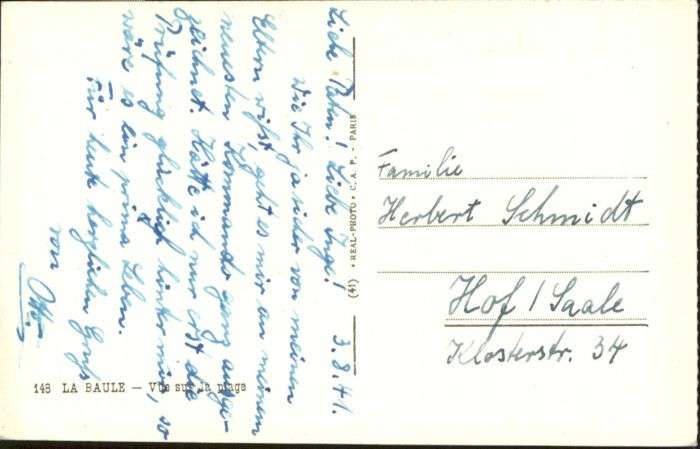 Liebe Patin! Liebe Inge! 3.8.41.
Wie Ihr ja sicher von meinen
Eltern wißt, geht es mir an meinem
neuesten Kommando ganz ausge-
zeichnet. Hätte ich nur erst die
Prüfung glücklich hinter mir, so
wäre es ein prima Leben.
Für heute herzlichen Gruß
von Otto.
148 LA BAULE — Vue sur la plage
(41) • REAL-PHOTO • C. A. P. - PARIS
Familie
Herbert Schmidt
Hof / Saale
Klosterstr. 34